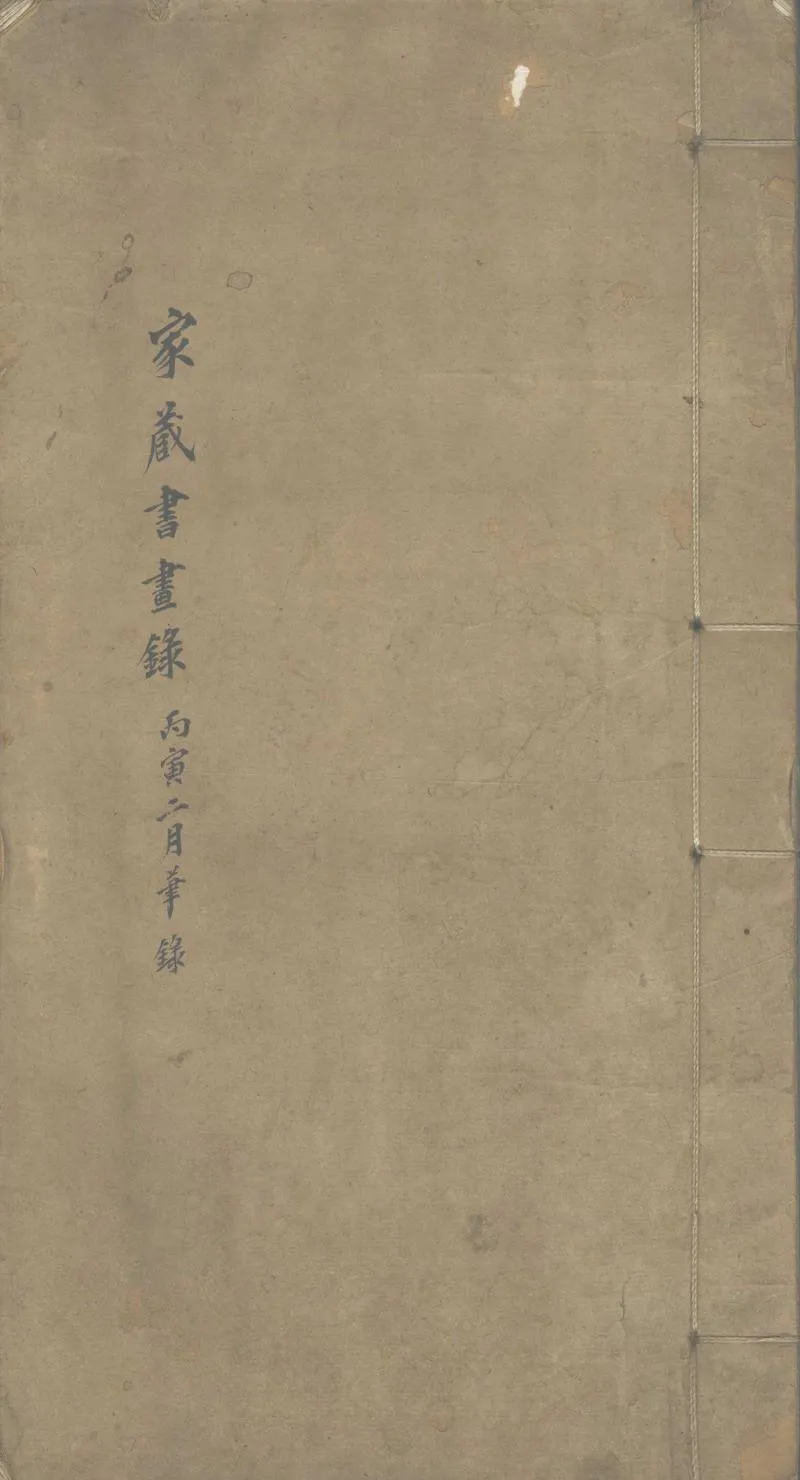 家藏書畫錄 丙寅二月華錄